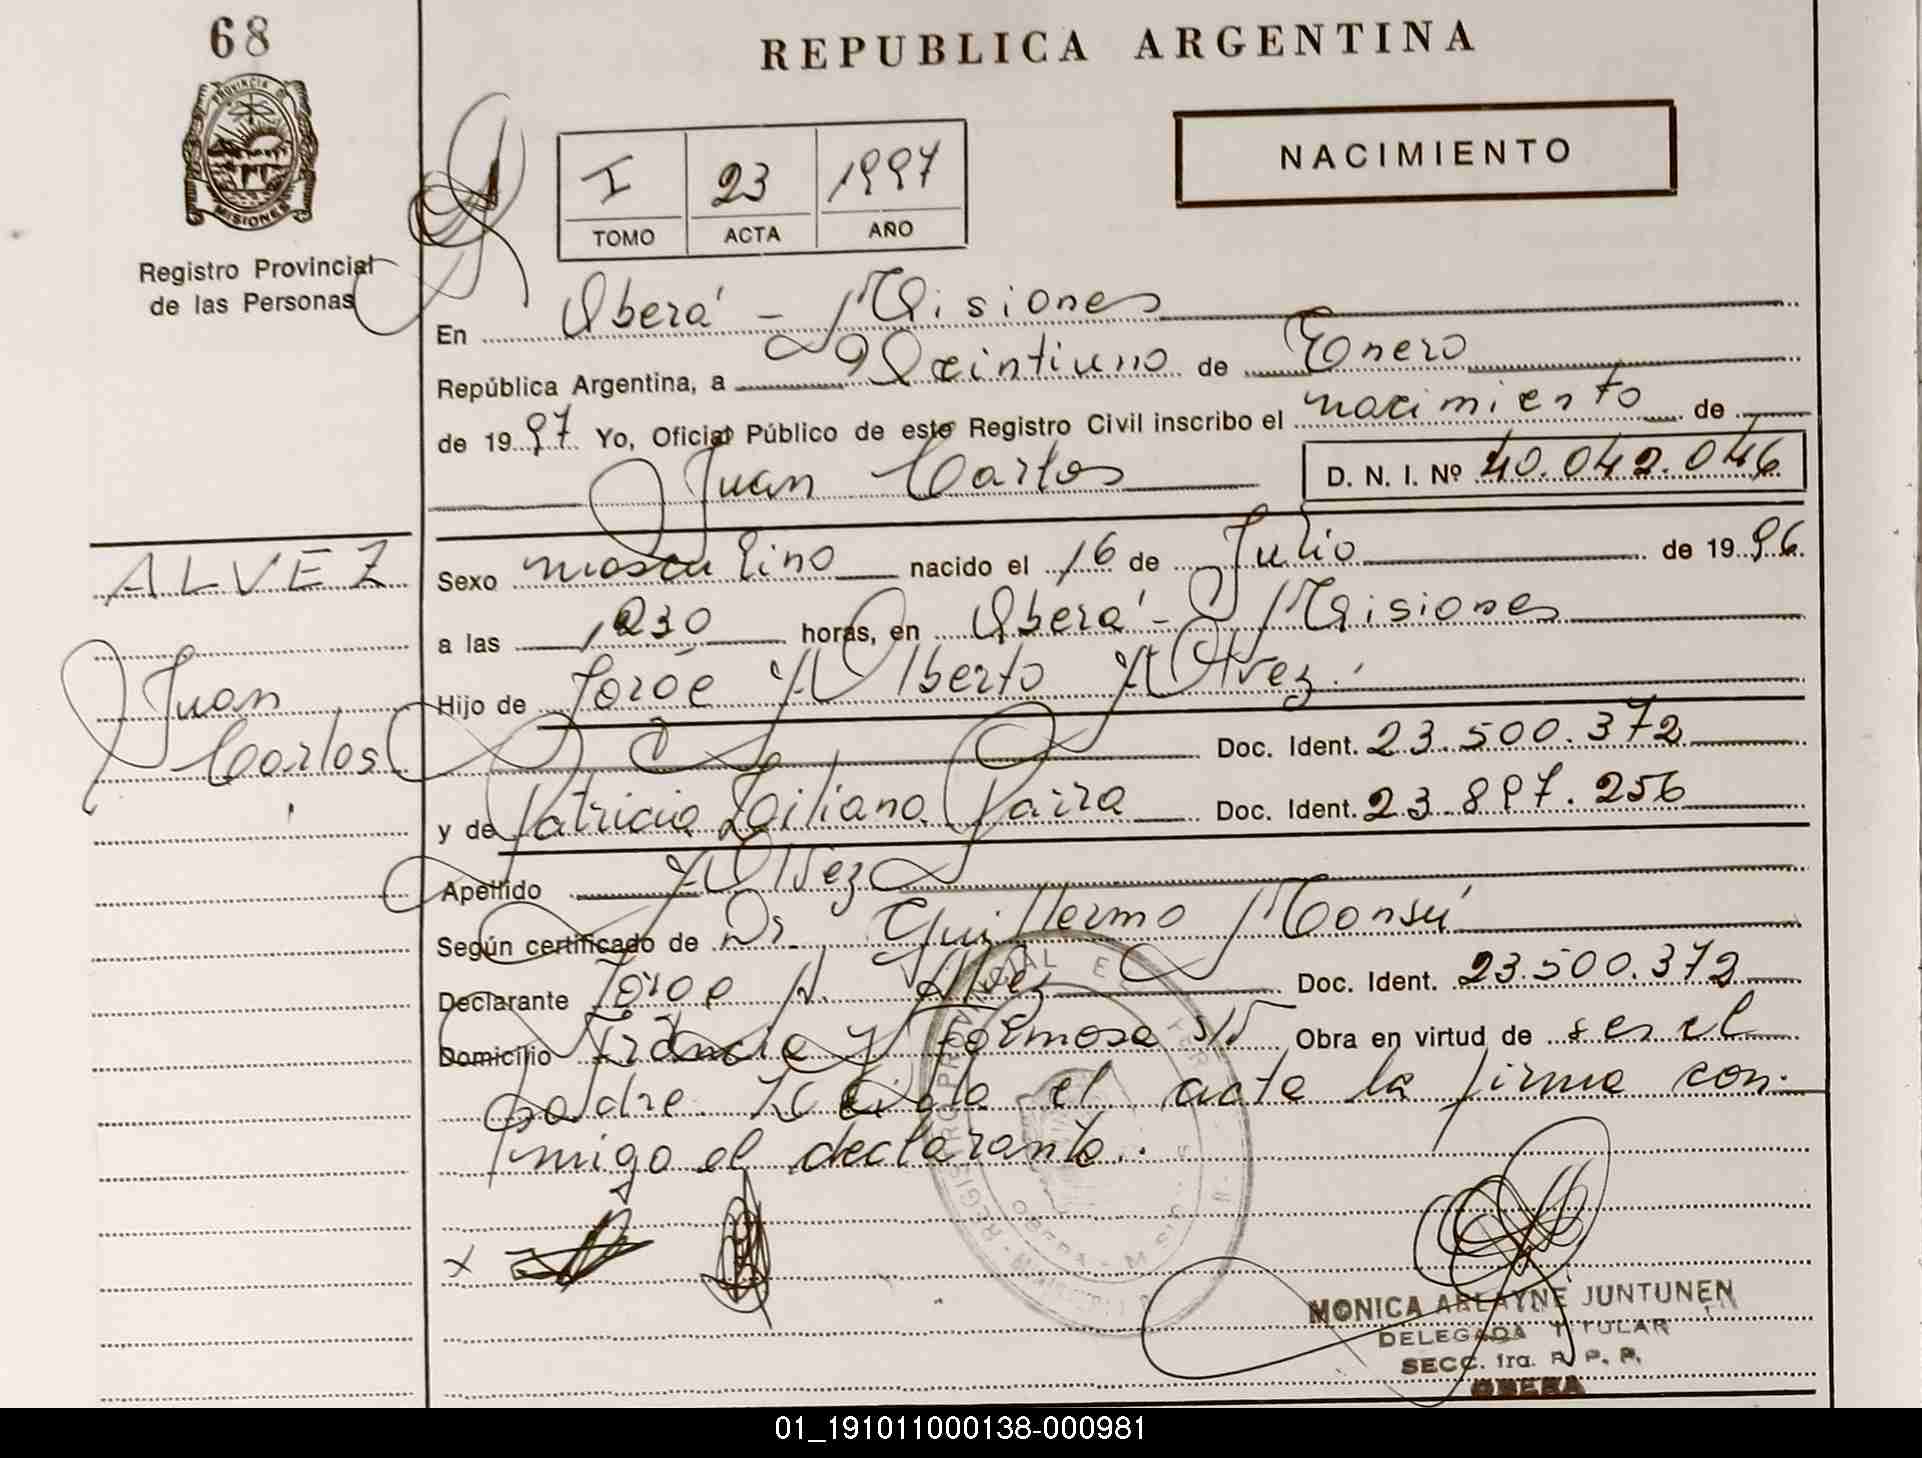 68
REPUBLICA ARGENTINA
PROVINCIA DE
MISIONES
Registro Provincial
de las Personas
I 23 1997
TOMO ACTA AÑO
NACIMIENTO
En Oberá - Misiones
República Argentina, a Veintiuno de Enero
de 1997 Yo, Oficial Público de este Registro Civil inscribo el nacimiento de
Juan Carlos D. N. I. Nº 40.042.046
ALVEZ
Juan
Carlos
Sexo masculino nacido el 16 de Julio de 1996.
a las 1230 horas, en Oberá - Misiones
Hijo de Jorge Alberto Alvez.
Doc. Ident. 23.500.372
y de Patricia Liliana Doc. Ident. 23.897.256
Apellido Alvez
Según certificado de Dr. Guillermo Monsú
Declarante Jorge A. Alvez Doc. Ident. 23.500.372
Domicilio Francia y Formosa S/N Obra en virtud de ser el
padre. Leída el acta la firma con-
migo el declarante.
x
MONICA ARLAYNE JUNTUNEN
DELEGADA TITULAR
SECC. 1ra. R. P. P.
OBERA
01_191011000138-000981